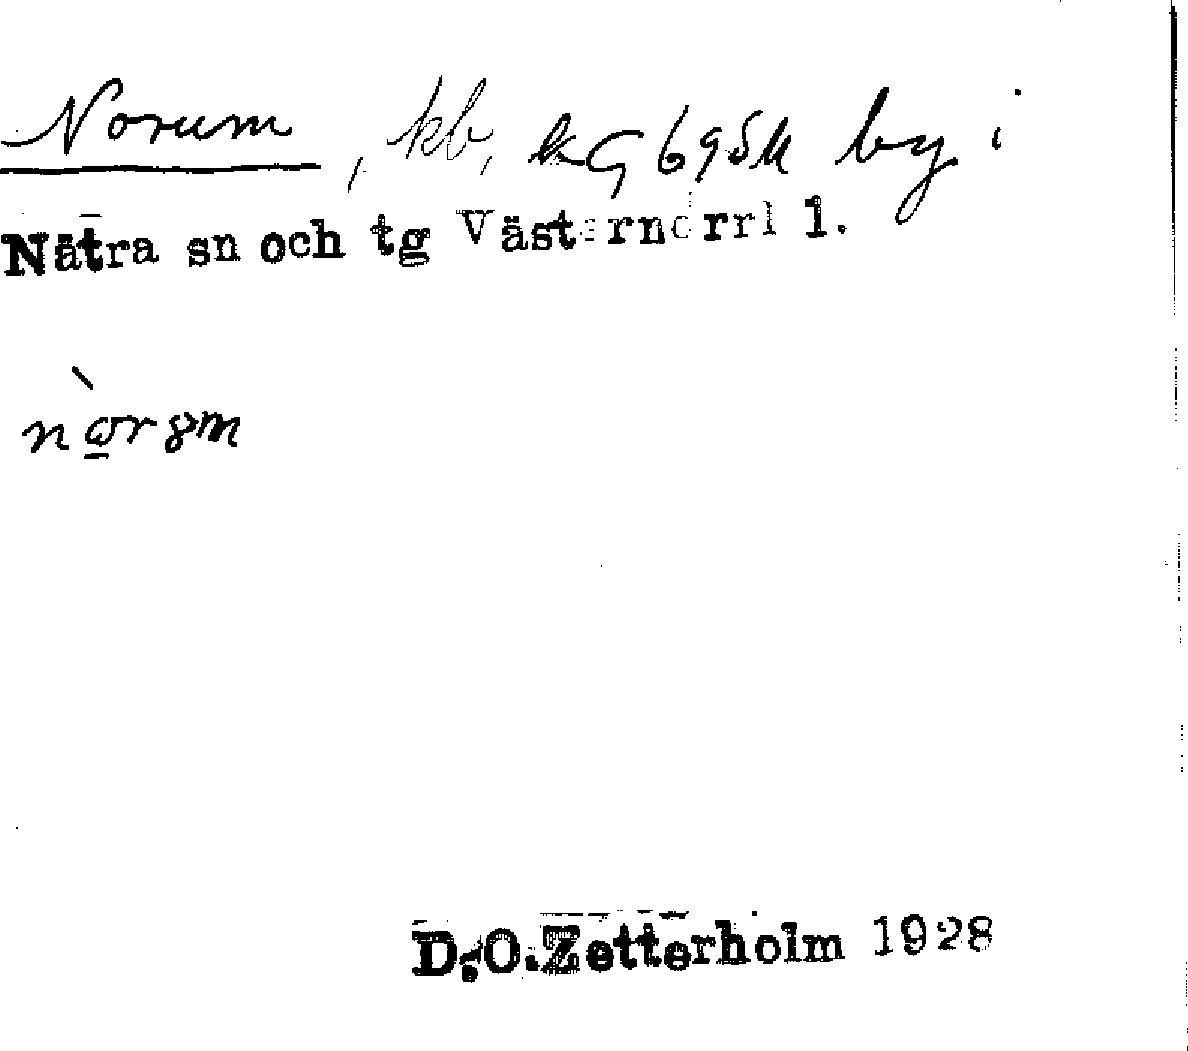 Norum, kb, kG 695k by i
Nätra sn och tg Västernorrl l.
D.O.Zetterholm 1928